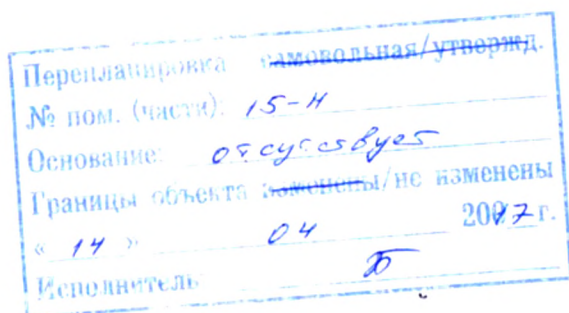 Перепланировка самовольная/утвержд.
№ пом. (части): 15-Н
Основание: отсутствует
Границы объекта изменены/не изменены
« 14 » 04 2017 г.
Исполнитель: